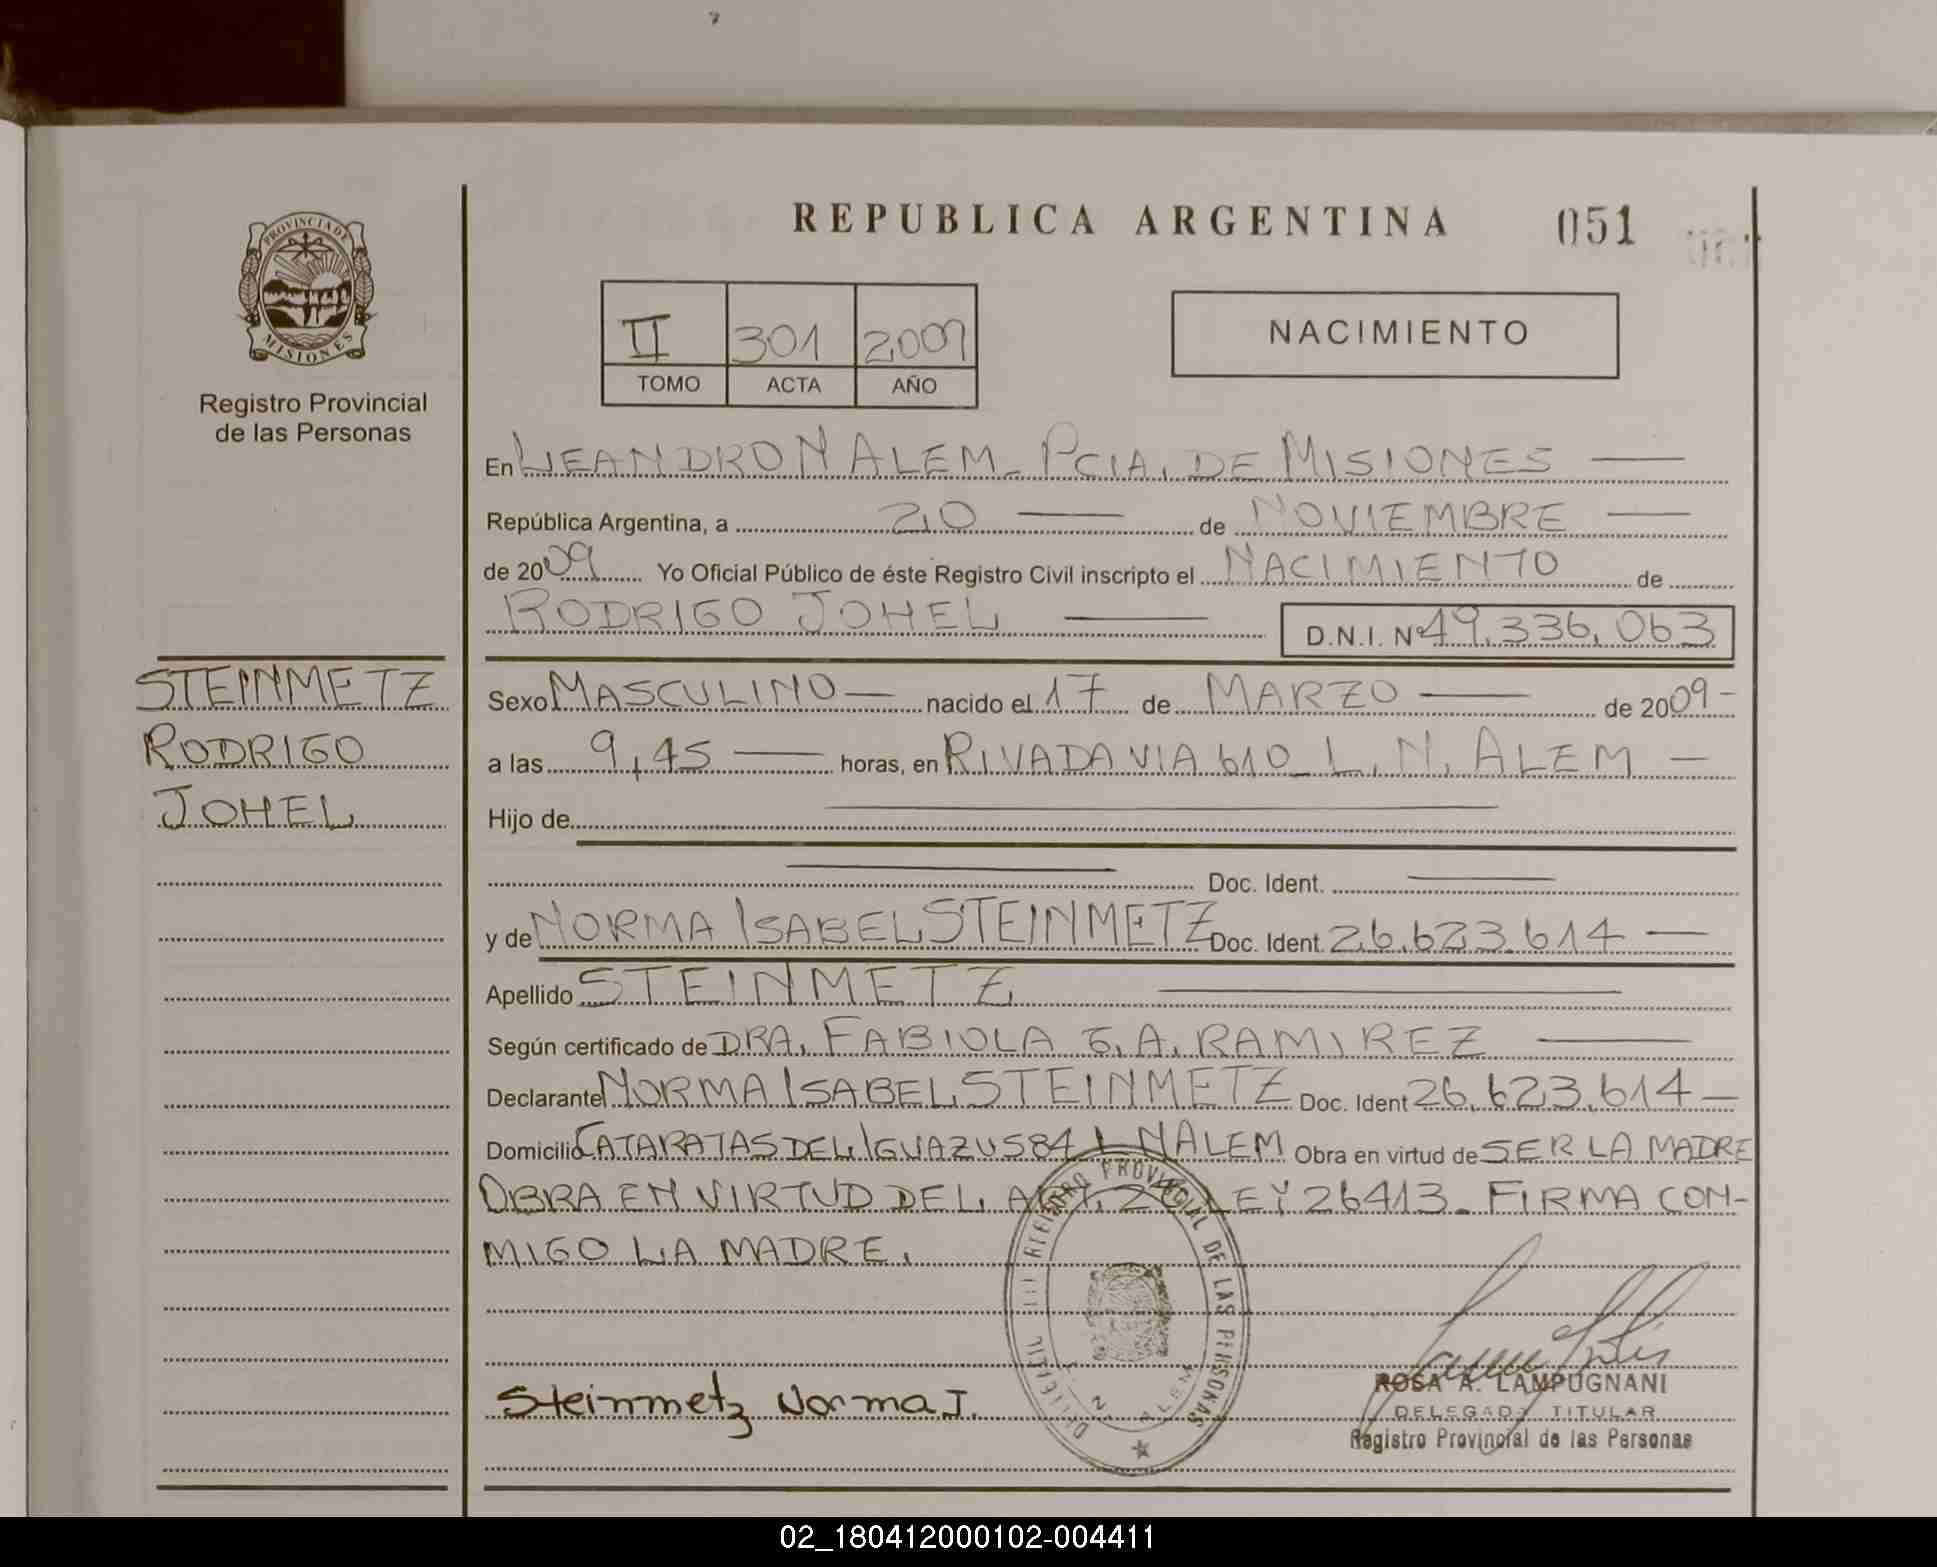 REPUBLICA ARGENTINA 051
PROVINCIA DE
MISIONES
Registro Provincial
de las Personas
II 301 2009
TOMO ACTA AÑO
NACIMIENTO
En LEANDRO N ALEM. PCIA. DE MISIONES
República Argentina, a 20 de NOVIEMBRE
de 2009 Yo Oficial Público de éste Registro Civil inscripto el NACIMIENTO de
RODRIGO JOHEL D.N.I. Nº 49.336.063
STEINMETZ
RODRIGO
JOHEL
Sexo MASCULINO nacido el 17 de MARZO de 2009
a las 9,45 horas, en RIVADAVIA 610_L.N. ALEM
Hijo de
Doc. Ident.
y de NORMA ISABEL STEINMETZ Doc. Ident. 26.623.614
Apellido STEINMETZ
Según certificado de DRA. FABIOLA G.A. RAMIREZ
Declarante NORMA ISABEL STEINMETZ Doc. Ident 26.623.614
Domicilio CATARATAS DEL IGUAZU 584 L NALEM Obra en virtud de SER LA MADRE
OBRA EN VIRTUD DEL ART. 29 LEY 26413. FIRMA CON-
MIGO LA MADRE.
REGISTRO PROVINCIAL DE LAS PERSONAS
L. N. ALEM
Steinmetz Norma I.
ROSA A. LAMPUGNANI
DELEGADA TITULAR
Registro Provincial de las Personas
02_180412000102-004411